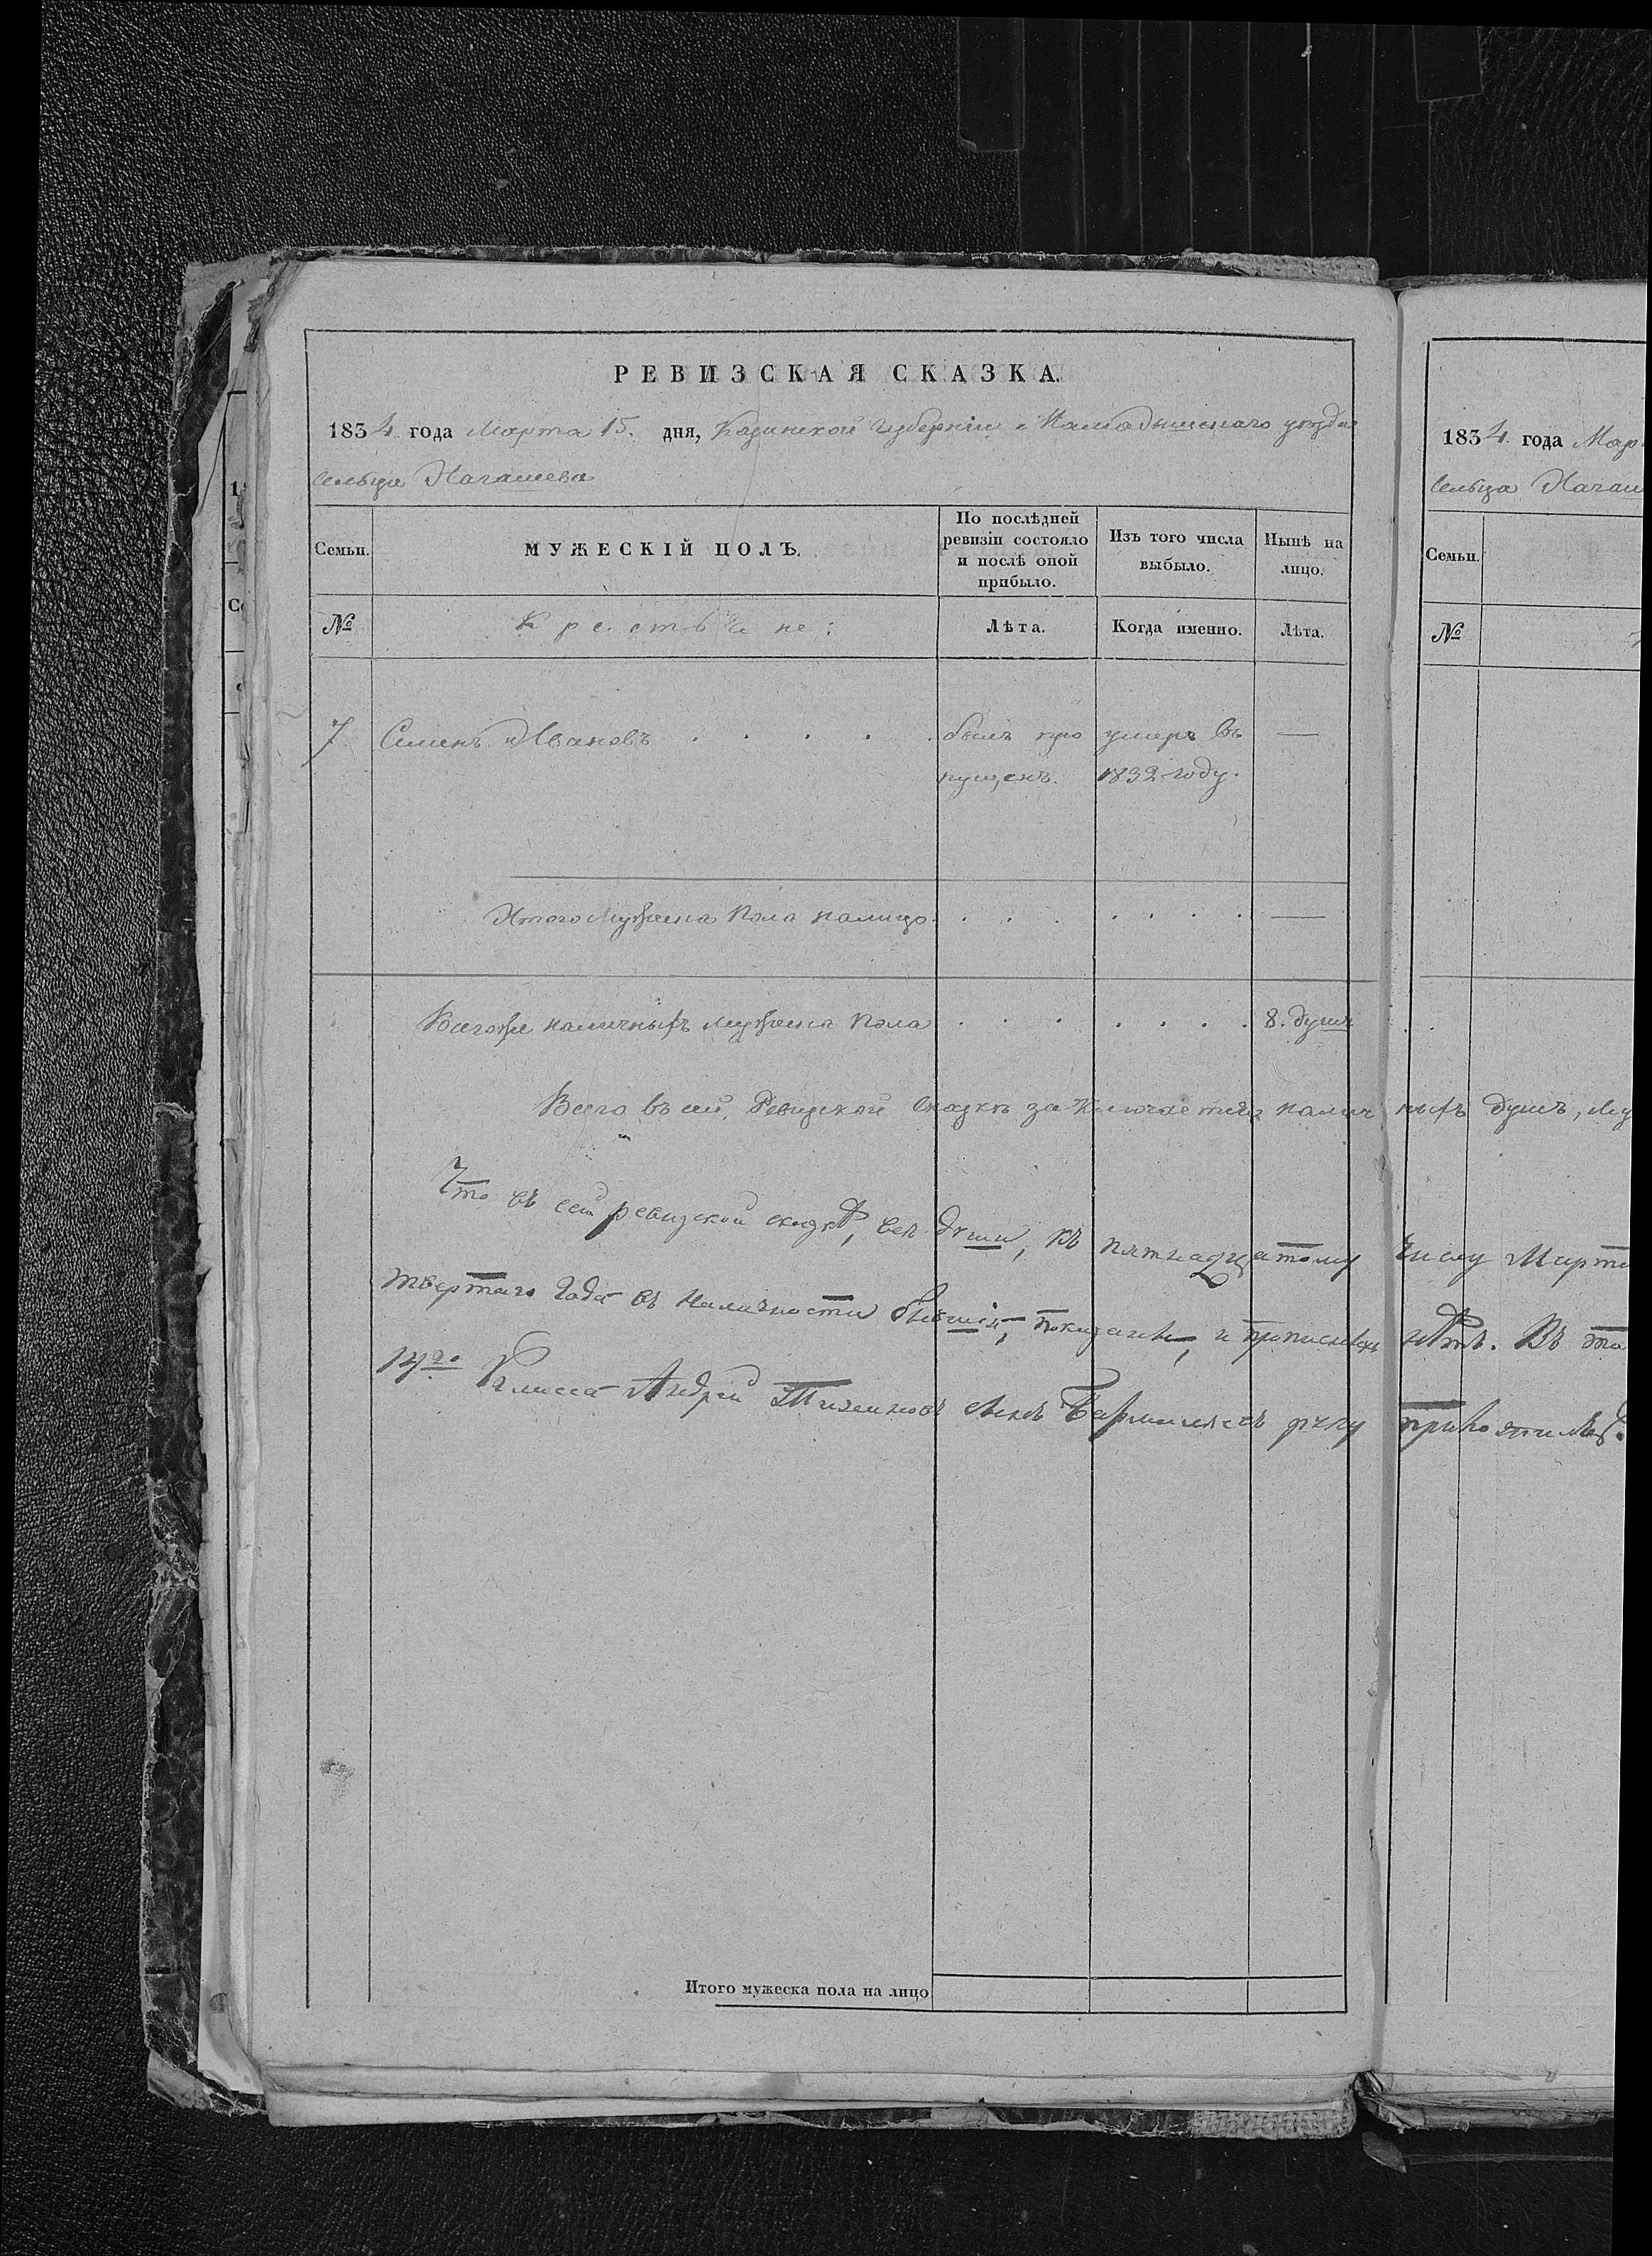 РЕВИЗСКАЯ СКАЗКА.
1834 года Марта 15. дня, Казанской Губерніи Мамадышскаго уѣзда
сельца
Семьи.
МУЖЕСКІЙ ПОЛЪ.
По послѣдней
ревизіи состояло
и послѣ оной
прибыло.
Изъ того числа
выбыло.
Нынѣ на
лицо.
№
Крестьяне:
Лѣта.
Когда именно.
Лѣта.
7 Семенъ Ивановъ . . . . . былъ про умеръ въ —
пущенъ. 1832 году.
Итого мужеска пола налицо . . . . . . . —
Всегоже наличныхъ мужеска пола . . . . . . . 8. душъ
Всего въ сей Ревизской сказкѣ заключается налич ныхъ душъ, му
Что въ сей ревизской сказкѣ, всѣ души, къ пятнадцатому числу Марта
твертаго года въ наличности бывшія, показаны, и прописныхъ нѣтъ. Въ
14го класса Андрей руку приложилъ.
Итого мужеска пола на лицо
1834 года Мар
сельца
Семьи.
№